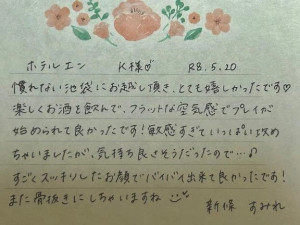 ホテルエン　K様♡　R8.5.20
慣れない池袋にお越し頂き、とても嬉しかったです♡
楽しくお酒を飲んで、フラットな空気感でプレイが
始められて良かったです!敏感すぎていっぱい攻め
ちゃいましたが、気持ち良さそうだったので…♪
すごくスッキリしたお顔でバイバイ出来て良かったです!
また骨抜きにしちゃいますね
新條　すみれ